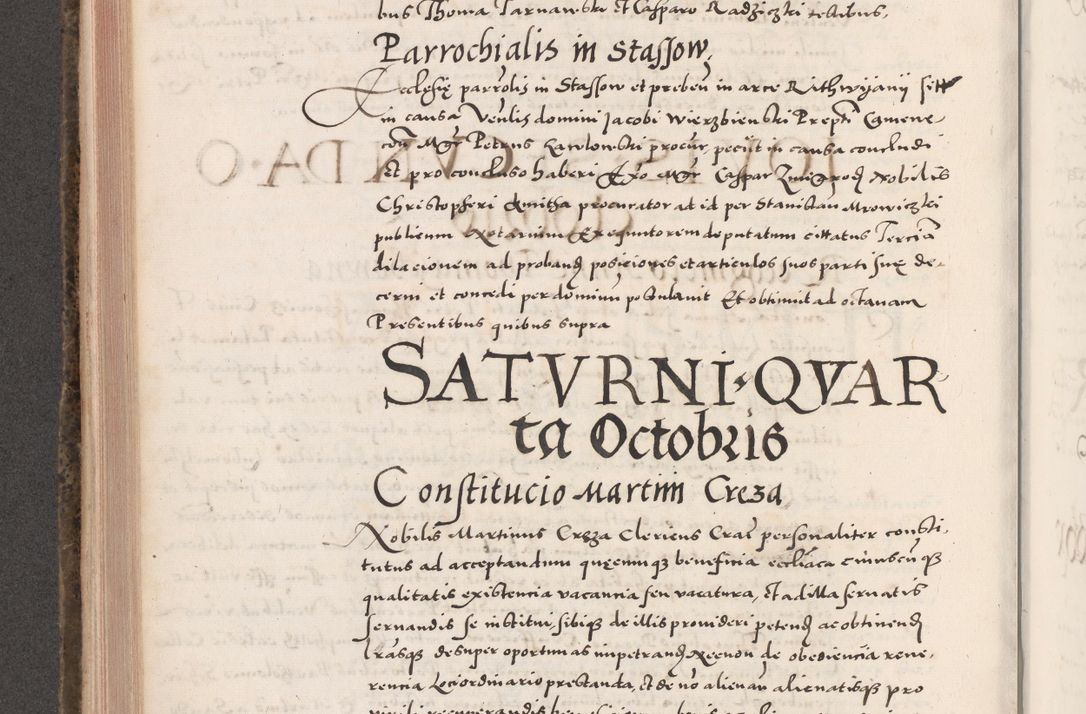 bus Thoma Tarnawski et Casparo Radziczki testibus,
Parrochialis in Stassow,
Ecclesię parrolis in Stassow et preben in arce Rithwijanij sitt
in causa Venlis domini Jacobi Wierzbienski Prepti Camene
Mgr Petrus Karlowski procur, peciit in causa concludi
Et pro concluso haberi Exo Mgr Caspar Zmigrod Nobilis
Christopheri Kmitha procurator ad id per Stanislau Mrowiczki
publicum Notarium Exequutorem deputatum cittatus Tercia
dilacionem ad proband posiciones et articulos suos parti suę de
cerni et concedi per dominu postulavit Et obtinuit ad octavam
Presentibus quibus supra
SATVRNI · QVAR
ta Octobris
Constitucio Martini Creza
Nobilis Martinus Creza Clericus Cral personaliter consti
tutus ad acceptandum quęcumq beneficia eccliaca cuiuscuq
qualitatis existencia vacancia seu vacatura, Et ad illa servatis
servandis se institui, sibiq de illis provideri petend ac obtinend
Lrasq desuper oportunas impetrand Necnon de obediencia reve
rencia Lociordinario prestanda, Et de no alienan alienatisq pro